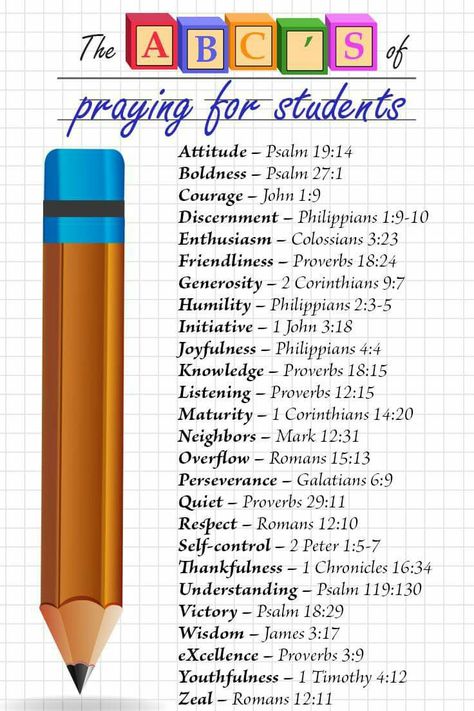 The ABC'S of
praying for students
Attitude – Psalm 19:14
Boldness – Psalm 27:1
Courage – John 1:9
Discernment – Philippians 1:9-10
Enthusiasm – Colossians 3:23
Friendliness – Proverbs 18:24
Generosity – 2 Corinthians 9:7
Humility – Philippians 2:3-5
Initiative – 1 John 3:18
Joyfulness – Philippians 4:4
Knowledge – Proverbs 18:15
Listening – Proverbs 12:15
Maturity – 1 Corinthians 14:20
Neighbors – Mark 12:31
Overflow – Romans 15:13
Perseverance – Galatians 6:9
Quiet – Proverbs 29:11
Respect – Romans 12:10
Self-control – 2 Peter 1:5-7
Thankfulness – 1 Chronicles 16:34
Understanding – Psalm 119:130
Victory – Psalm 18:29
Wisdom – James 3:17
eXcellence – Proverbs 3:9
Youthfulness – 1 Timothy 4:12
Zeal – Romans 12:11